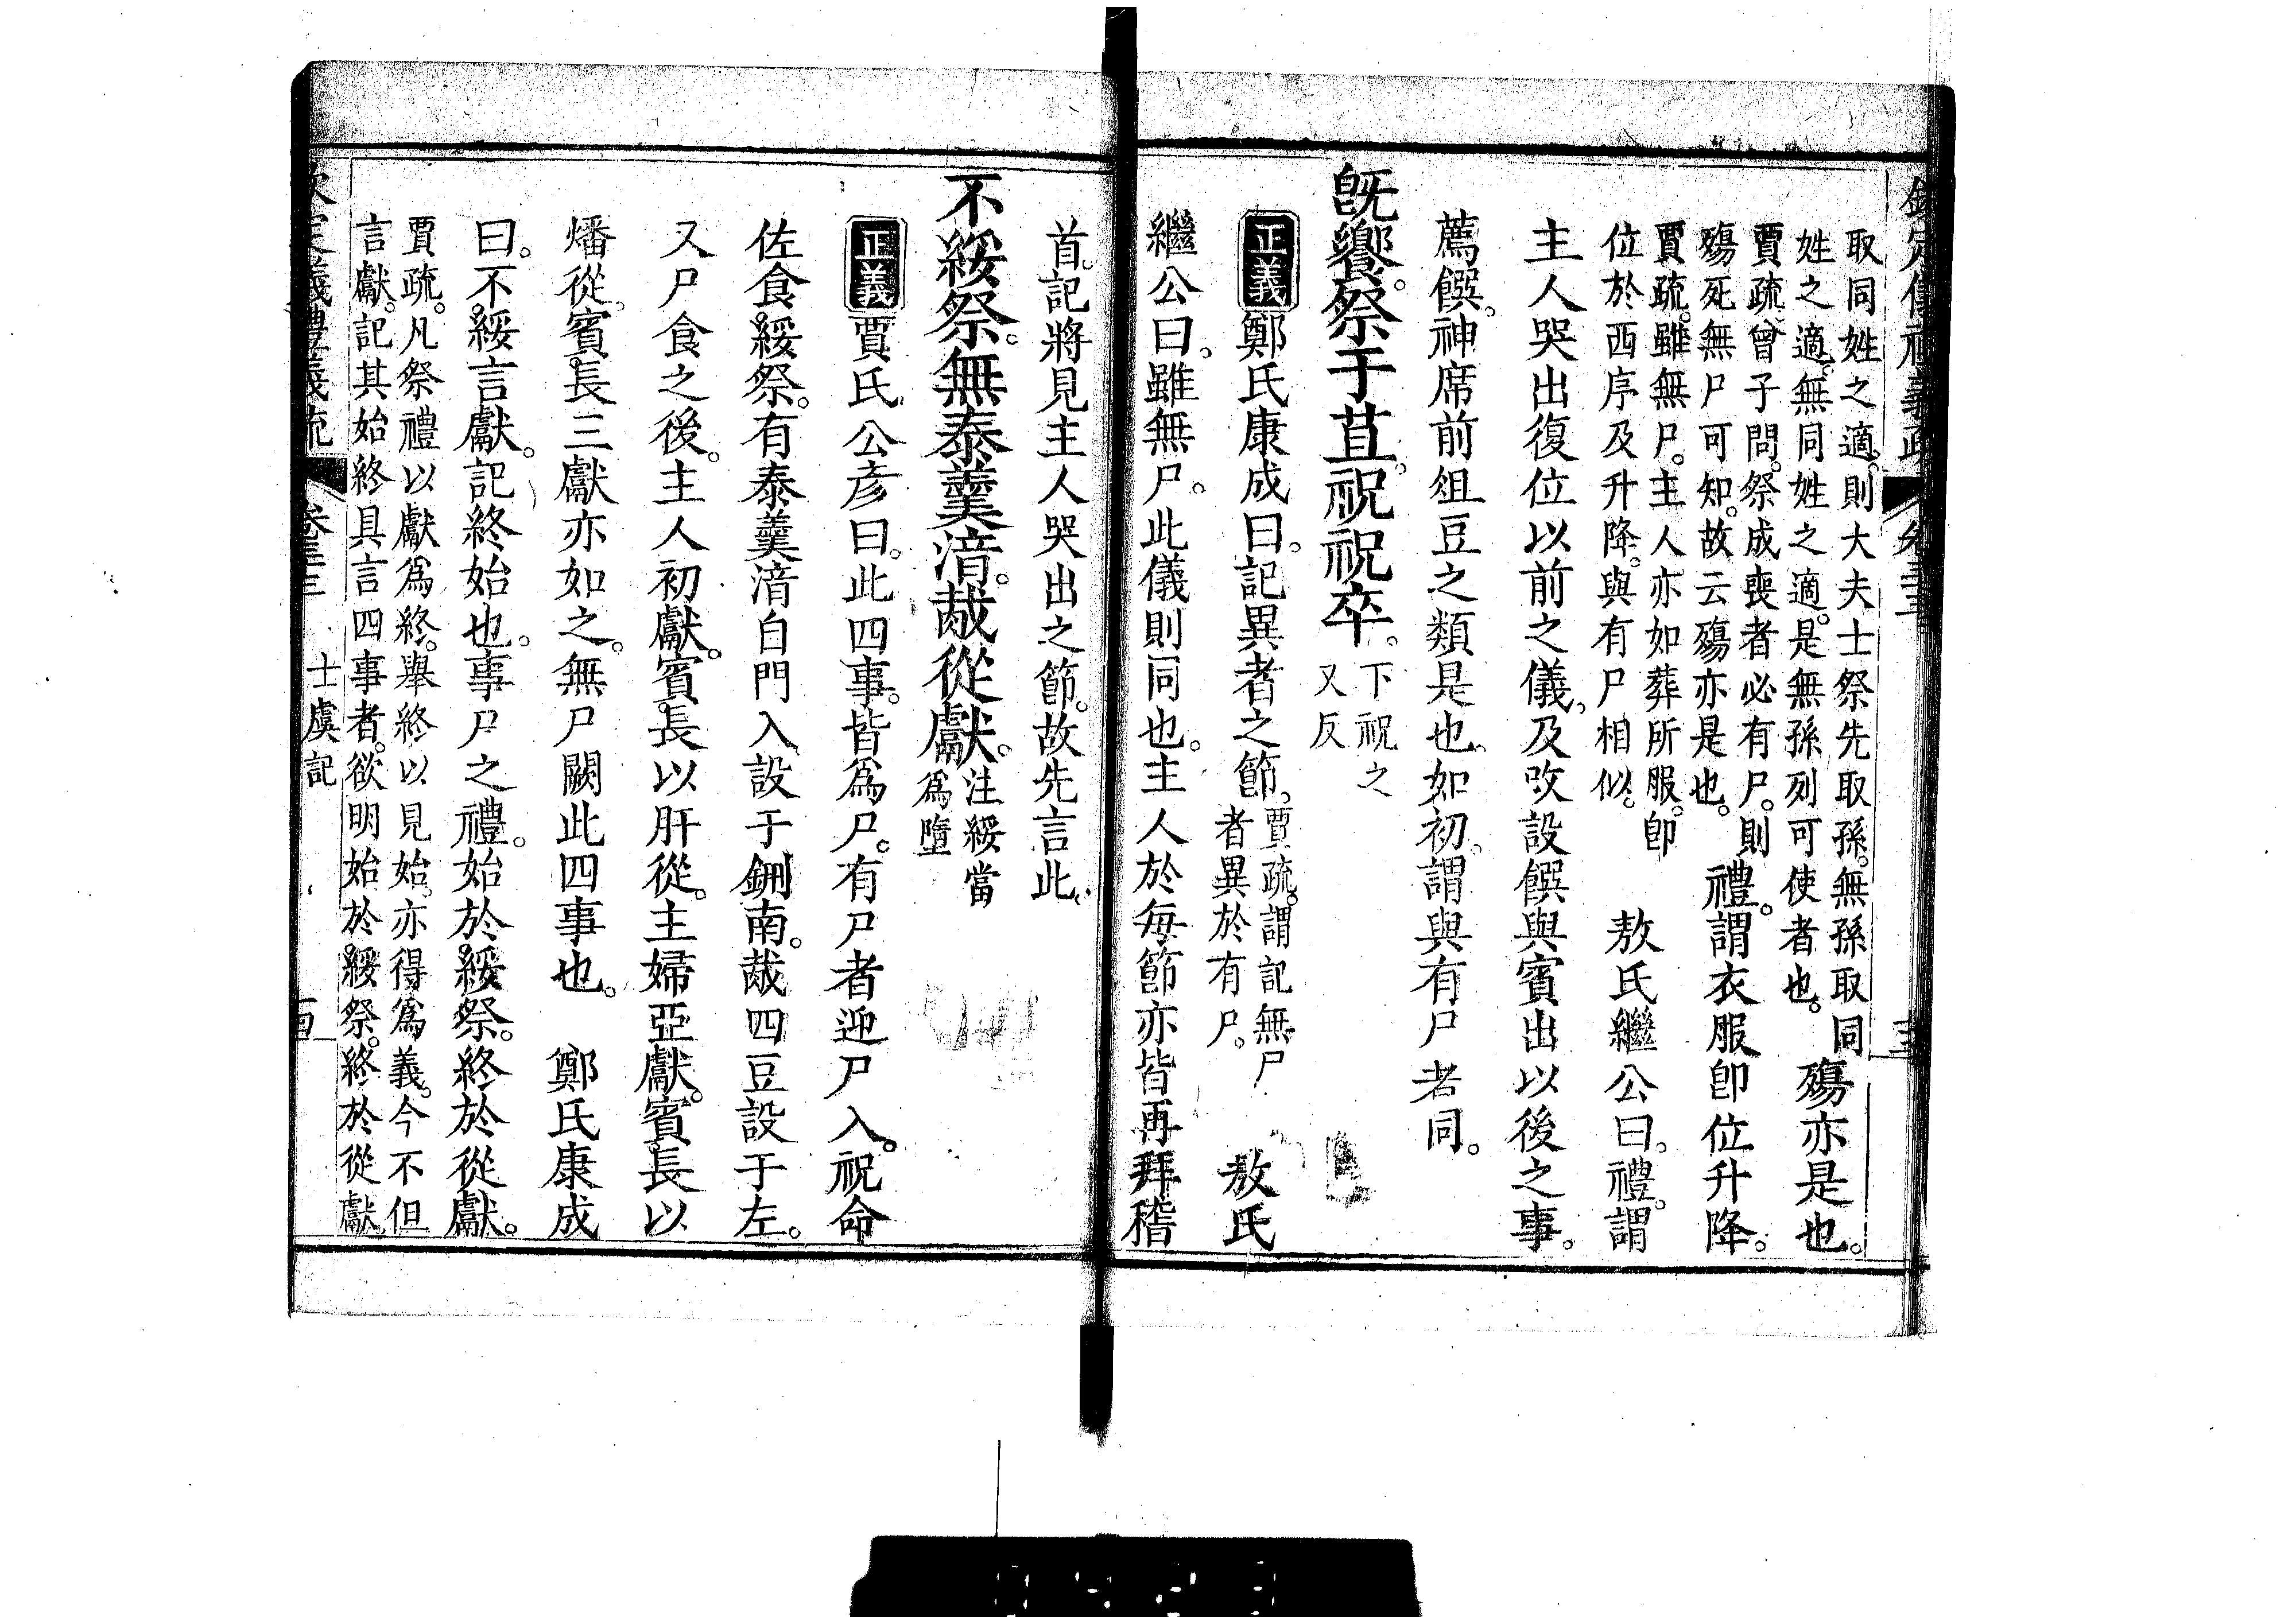 欽定儀禮義疏　卷三十三
取同姓之適。則大夫士祭先取孫。無孫取同
姓之適。無同姓之適。是無孫列可使者也。　殤亦是也。
賈疏。曾子問。祭成喪者必有尸。則
殤死無尸可知。故云殤亦是也。　禮。謂衣服卽位升降。
賈疏。雖無尸。主人亦如葬所服。卽
位於西序及升降。與有尸相似。　敖氏繼公曰。禮。謂
主人哭出復位以前之儀。及改設饌與賓出以後之事。
薦饌。神席前俎豆之類是也。如初。謂與有尸者同。
旣饗。祭于苴。祝祝卒。下祝之
又反
正義　鄭氏康成曰。記異者之節。賈疏。謂記無尸
者異於有尸。　敖氏
繼公曰。雖無尸。此儀則同也。主人於每節亦皆再拜稽
首。記將見主人哭出之節。故先言此。
不綏祭。無泰羹湆。胾從獻。注綏當
爲墮
正義　賈氏公彥曰。此四事。皆爲尸。有尸者迎尸入。祝命
佐食綏祭。有泰羹湆自門入設于鉶南。胾四豆設于左。
又尸食之後。主人初獻。賓長以肝從。主婦亞獻。賓長以
燔從。賓長三獻亦如之。無尸闕此四事也。　鄭氏康成
曰。不綏言獻。記終始也。事尸之禮。始於綏祭。終於從獻。
賈疏。凡祭禮以獻爲終。舉終以見始。亦得爲義。今不但
言獻。記其始終具言四事者。欲明始於綏祭。終於從獻。
欽定儀禮義疏　卷三十三　士虞記